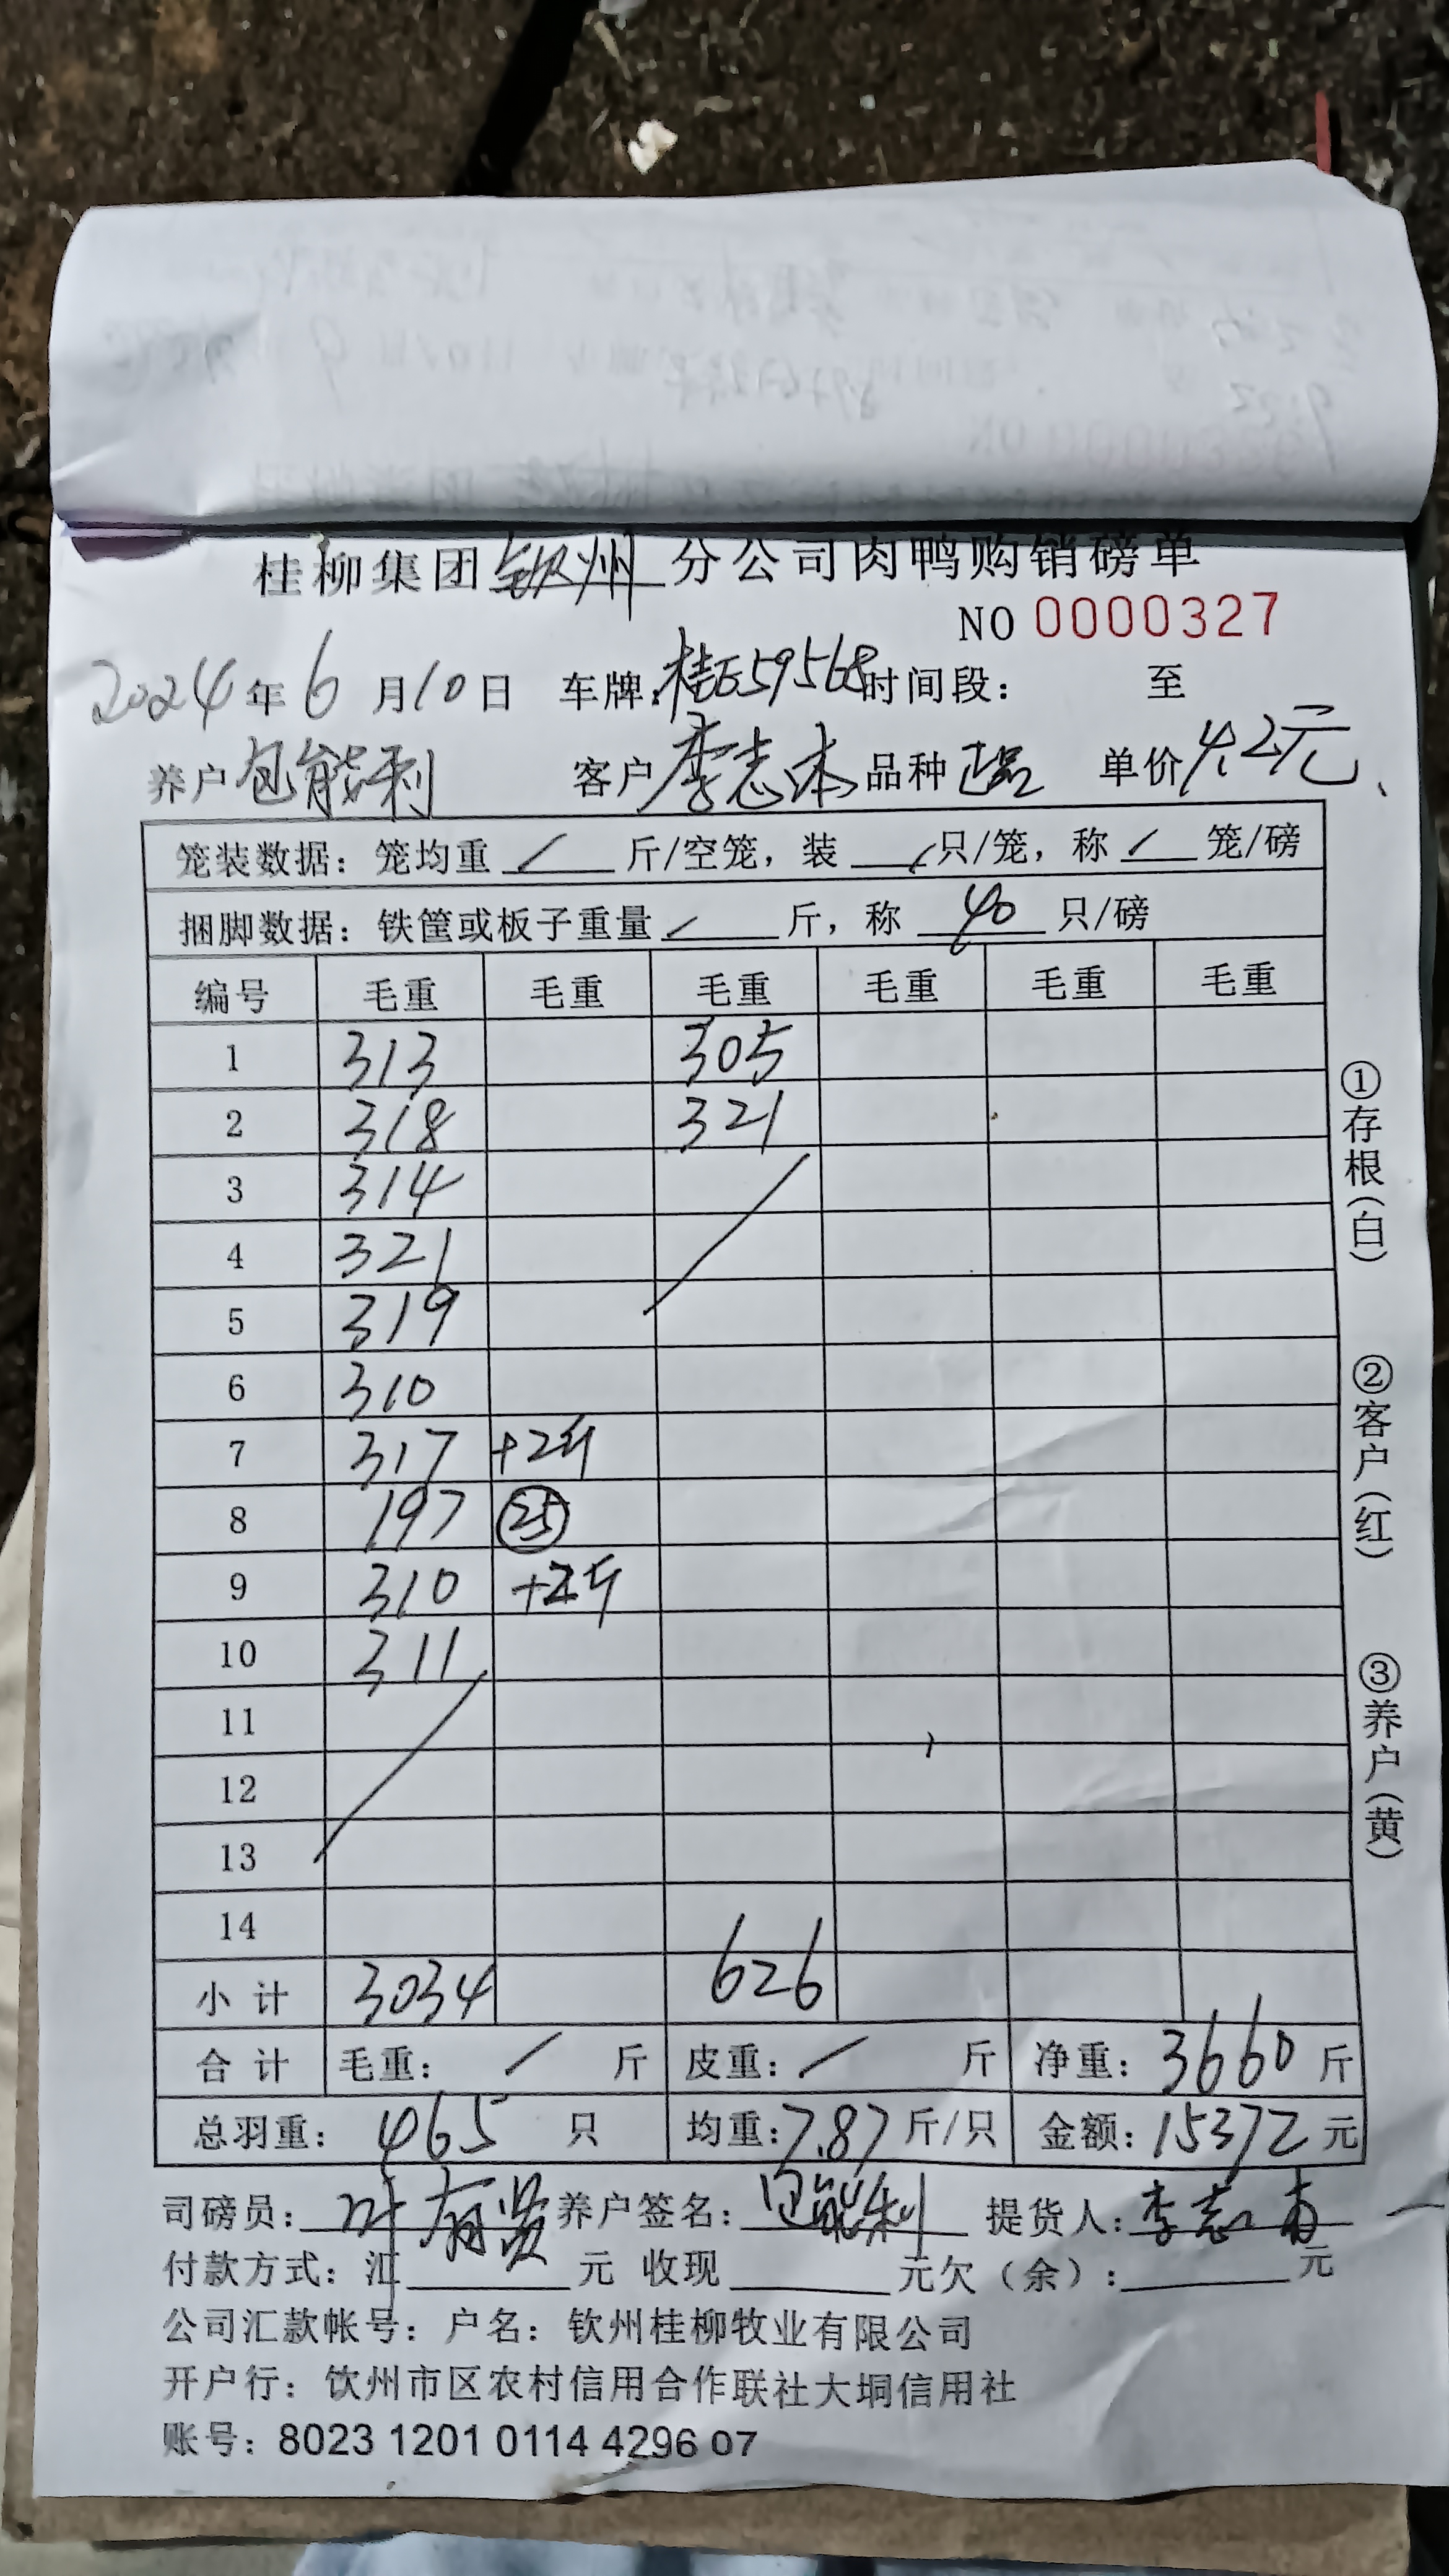 桂柳集团钦州分公司肉鸭购销磅单
NO 0000327
2024年6月10日 车牌:桂E59568时间段: 至
养户 包能利 客户 李志本 品种 正品 单价 4.2元
笼装数据: 笼均重 / 斤/空笼, 装 / 只/笼, 称 / 笼/磅
捆脚数据: 铁筐或板子重量 / 斤, 称 40 只/磅
编号 毛重 毛重 毛重 毛重 毛重 毛重
1 313 305
2 318 321
3 314
4 321
5 319
6 310
7 317 +2斤
8 197 25
9 310 +2斤
10 311
11
12
13
14
小计 3034 626
合计 毛重: / 斤 皮重: / 斤 净重: 3660 斤
总羽重: 465 只 均重: 7.87 斤/只 金额: 15372 元
司磅员: 叶有贤 养户签名: 包能利 提货人: 李志
付款方式: 汇 元 收现 元欠(余): 元
公司汇款帐号: 户名: 钦州桂柳牧业有限公司
开户行: 饮州市区农村信用合作联社大垌信用社
账号: 8023 1201 0114 4296 07
①存根(白)
②客户(红)
③养户(黄)